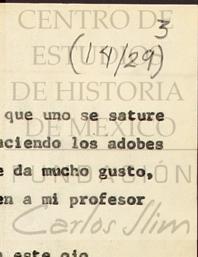 CENTRO DE
ESTUDIOS
3
(14/29)
DE HISTORIA
que uno se sature
DE MÉXICO
aciendo los adobes
e da mucho gusto,
FUNDACIÓN
en a mi profesor
Carlos Slim
este ojo